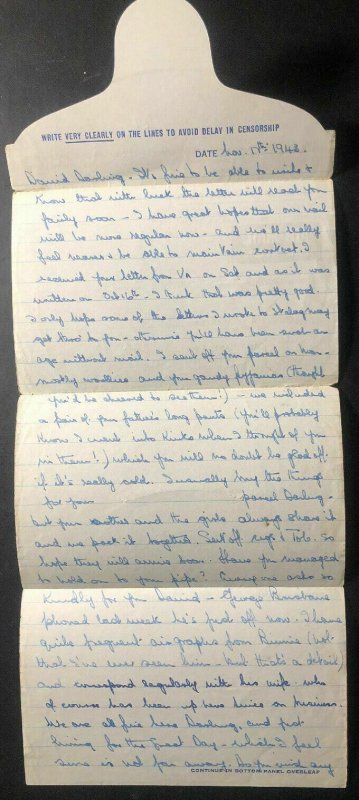 WRITE VERY CLEARLY ON THE LINES TO AVOID DELAY IN CENSORSHIP
DATE Nov. 17th 1943.
David Darling. It's fine to be able to write &
know that with luck the letter will reach you
fairly soon - I have great hopes that our mail
will be more regular now - and we'll really
feel nearer & be able to maintain contact. I
received your letter from VA on Sat and as it was
written on Oct 16th - I think that was pretty good.
I only hope some of the letters I wrote to Stalag may
get thro' to you - otherwise you'll have been such an
age without mail. I sent off your parcel on Mon -
mostly woollies and your gaudy pyjamas (thought
you'd be cheered to see them!) - we included
a pair of your father's long pants (you'll probably
know I went into kinks when I thought of you
in them!) which you will no doubt be glad of
if it's really cold. I usually buy the things
for your parcel Darling -
but your mother and the girls always share it
and we pack it together. Sent off cigs & Tob. so
hope they will arrive soon. Have you managed
to hold on to your pipe? Everyone asks so
kindly for you David - George Brisbane
phoned last week he's posted off now. I have
quite frequent airgraphs from Runnie (not
that I've ever seen him - but that's a detail)
and correspond regularly with his wife - who
of course has been up here twice on business.
We are all fine here Darling, and just
living for the Great Day - which I feel
sure is not far away. Do you need any
CONTINUE IN BOTTOM PANEL OVERLEAF